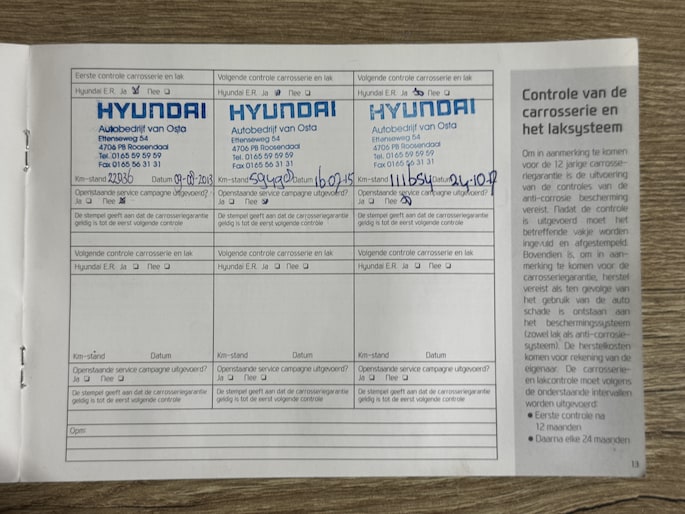 Eerste controle carrosserie en lak
Hyundai E.R. Ja Nee
HYUNDAI
Autobedrijf van Osta
Ettenseweg 54
4706 PB Roosendaal
Tel. 0165 59 59 59
Fax 0165 56 31 31
Km-stand 22936 Datum 09-08-2013
Openstaande service campagne uitgevoerd?
Ja Nee
De stempel geeft aan dat de carrosseriegarantie
geldig is tot de eerst volgende controle
Volgende controle carrosserie en lak
Hyundai E.R. Ja Nee
HYUNDAI
Autobedrijf van Osta
Ettenseweg 54
4706 PB Roosendaal
Tel. 0165 59 59 59
Fax 0165 56 31 31
Km-stand Datum 16-07-15
Openstaande service campagne uitgevoerd?
Ja Nee
De stempel geeft aan dat de carrosseriegarantie
geldig is tot de eerst volgende controle
Volgende controle carrosserie en lak
Hyundai E.R. Ja Nee
HYUNDAI
Autobedrijf van Osta
Ettenseweg 54
4706 PB Roosendaal
Tel. 0165 59 59 59
Fax 0165 56 31 31
Km-stand 111654 Datum 24-10-17
Openstaande service campagne uitgevoerd?
Ja Nee
De stempel geeft aan dat de carrosseriegarantie
geldig is tot de eerst volgende controle
Volgende controle carrosserie en lak
Hyundai E.R. Ja Nee
Km-stand Datum
Openstaande service campagne uitgevoerd?
Ja Nee
De stempel geeft aan dat de carrosseriegarantie
geldig is tot de eerst volgende controle
Volgende controle carrosserie en lak
Hyundai E.R. Ja Nee
Km-stand Datum
Openstaande service campagne uitgevoerd?
Ja Nee
De stempel geeft aan dat de carrosseriegarantie
geldig is tot de eerst volgende controle
Volgende controle carrosserie en lak
Hyundai E.R. Ja Nee
Km-stand Datum
Openstaande service campagne uitgevoerd?
Ja Nee
De stempel geeft aan dat de carrosseriegarantie
geldig is tot de eerst volgende controle
Opm:
Controle van de
carrosserie en
het laksysteem
Om in aanmerking te komen
voor de 12 jarige carrosse-
riegarantie is de uitvoering
van de controles van de
anti-corrosie bescherming
vereist. Nadat de controle
is uitgevoerd moet het
betreffende vakje worden
ingevuld en afgestempeld.
Bovendien is, om in aan-
merking te komen voor de
carrosseriegarantie, herstel
vereist als ten gevolge van
het gebruik van de auto
schade is ontstaan aan
het beschermingssysteem
(zowel lak als anti-corrosie-
systeem). De herstelkosten
komen voor rekening van de
eigenaar. De carrosserie-
en lakcontrole moet volgens
de onderstaande intervallen
worden uitgevoerd:
• Eerste controle na
12 maanden
• Daarna elke 24 maanden
13